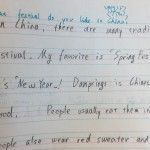 festival do you like in China?
In China, there are many tradi
festival. My favorite is "Spring Fes
's "New Year_! Dumplings is Chines
ood, People usually eat them in
eople also wear red sweater and